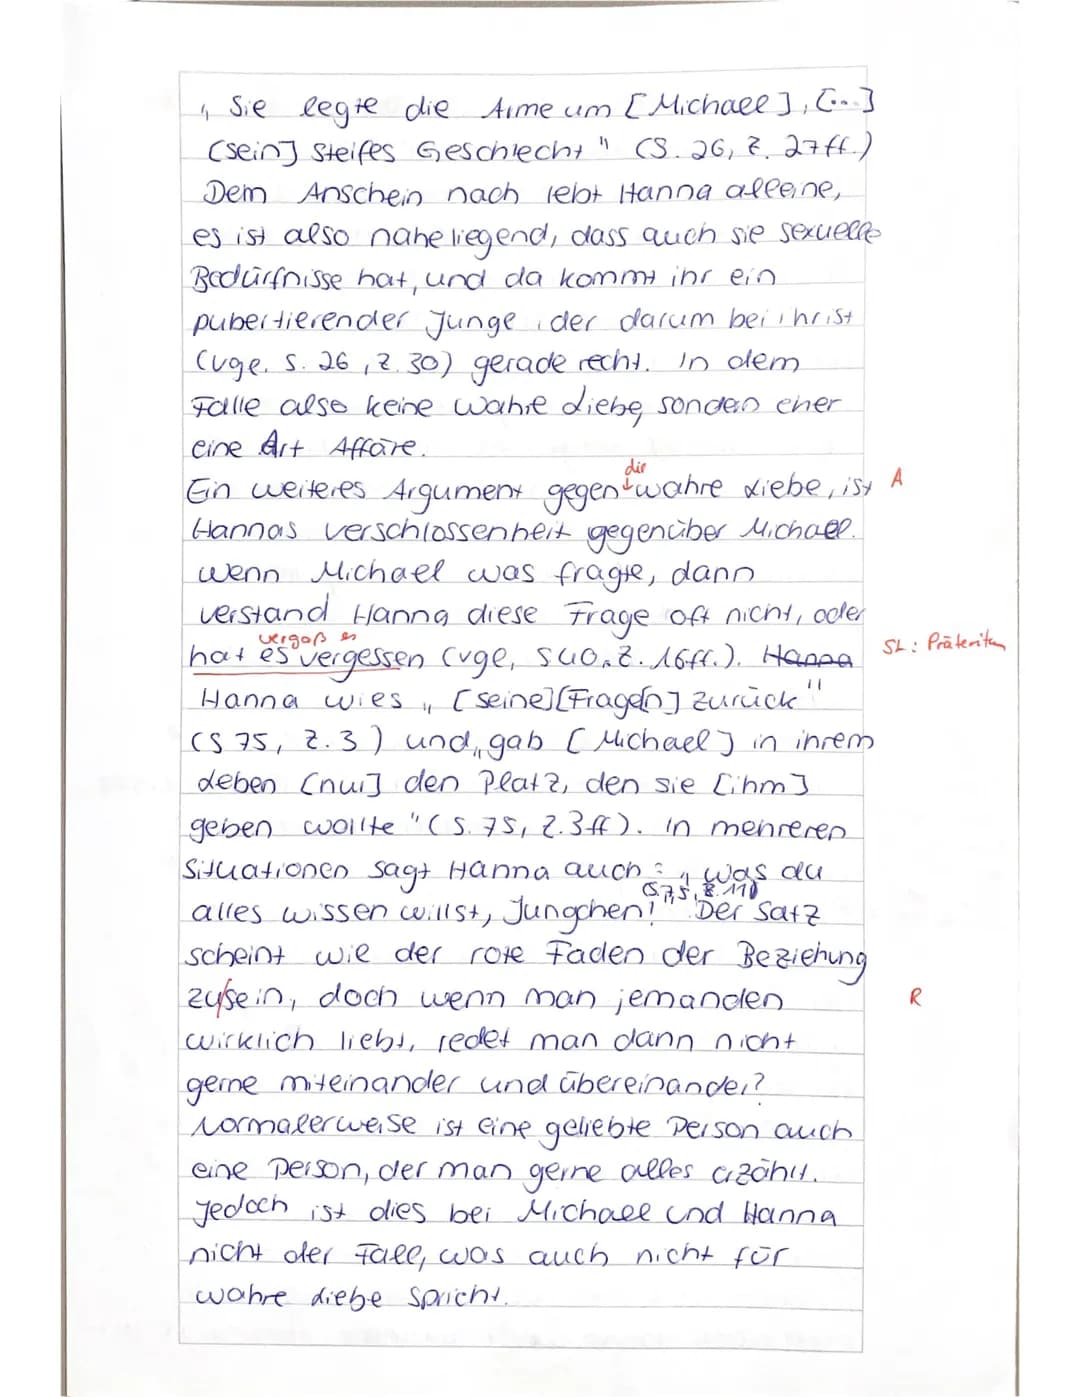 „ Sie legte die Arme um [Michael], [...]
[sein] steifes Geschlecht" (S. 26, Z. 27ff.)
Dem Anschein nach lebt Hanna alleine,
es ist also naheliegend, dass auch sie sexuelle
Bedürfnisse hat, und da kommt ihr ein
pubertierender Junge, der darum bei ihr ist
(vgl. S. 26, Z. 30) gerade recht. In dem
Falle also keine wahre Liebe, sondern eher
eine Art Affäre.
die
Ein weiteres Argument gegen wahre Liebe, ist A
Hannas Verschlossenheit gegenüber Michael.
Wenn Michael was fragte, dann
verstand Hanna diese Frage oft nicht, oder
vergaß es
hat es vergessen (vgl. S40, Z. 16ff.). Hanna SL: Präteritum
Hanna wies „ [seine][Frage[n] zurück"
(S 75, Z. 3) und „gab [Michael] in ihrem
Leben [nur] den Platz, den sie [ihm]
geben wollte" (S. 75, Z. 3ff). In mehreren
Situationen sagt Hanna auch: „ Was du
(S. 75, Z. 11)
alles wissen willst, Jungchen!" Der Satz
scheint wie der rote Faden der Beziehung
zu sein, doch wenn man jemanden R
wirklich liebt, redet man dann nicht
gerne miteinander und übereinander?
Normalerweise ist eine geliebte Person auch
eine Person, der man gerne alles erzählt.
Jedoch ist dies bei Michael und Hanna
nicht der Fall, was auch nicht für
wahre Liebe spricht.